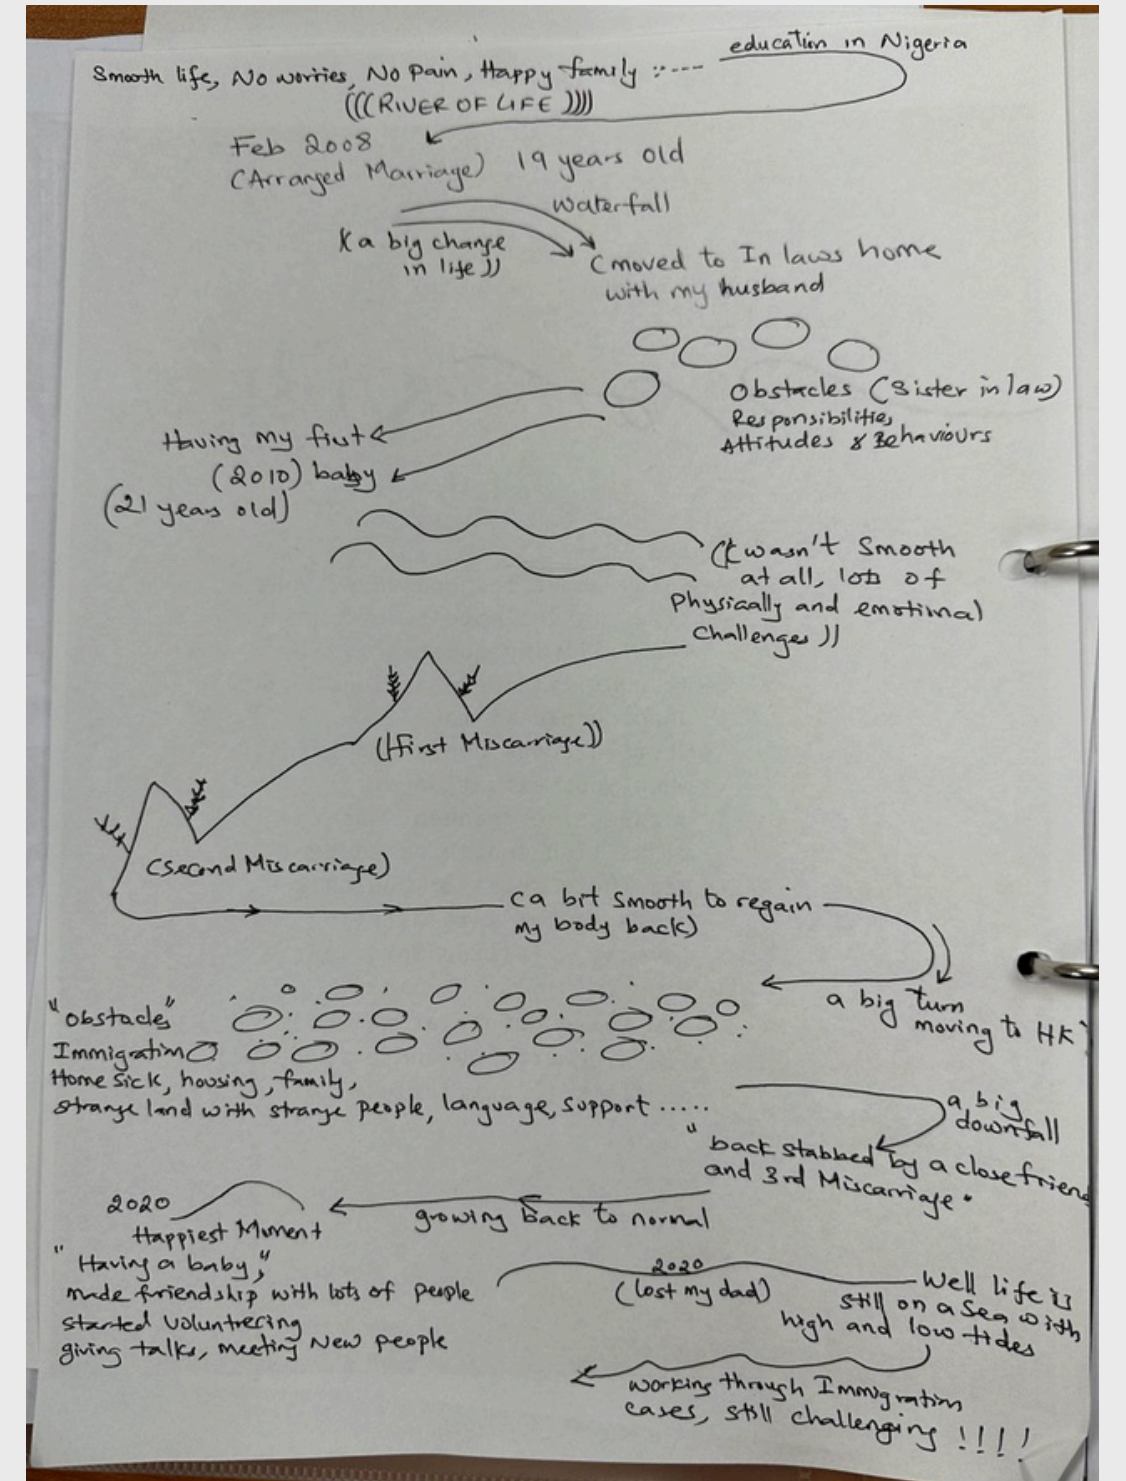 education in Nigeria
Smooth life, No worries, No Pain, Happy family :----
(((RIVER OF LIFE))))
Feb 2008
(Arranged Marriage) 19 years old
Waterfall
(a big change
in life))
(moved to In laws home
with my husband
Obstacles (Sister in law)
Responsibilities
Attitudes & Behaviours
Having my first
(2010) baby
(21 years old)
((wasn't Smooth
at all, lots of
Physically and emotional
Challenges))
(First Miscarriage))
(Second Miscarriage)
(a bit smooth to regain
my body back)
a big turn
moving to HK
"Obstacles"
Immigration
Home sick, housing, family,
strange land with strange people, language, support .....
a big
downfall
"back stabbed by a close friend
and 3rd Miscarriage"
growing back to normal
2020
Happiest Moment
"Having a baby,"
made friendship with lots of people
started volunteering
giving talks, meeting New people
2020
(lost my dad)
Well life is
still on a sea with
high and low tides
working through Immigration
cases, still challenging !!!!